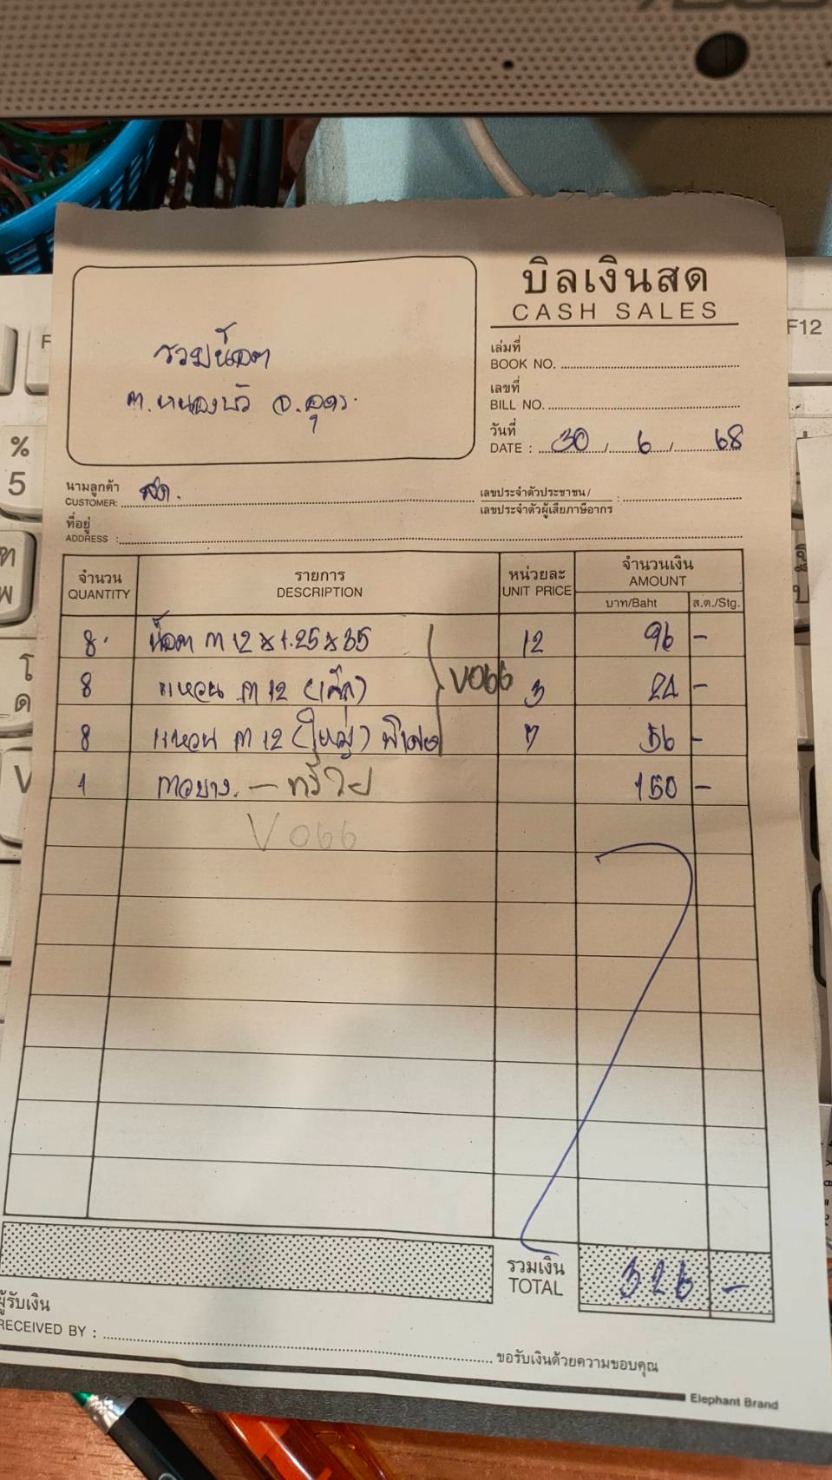 บิลเงินสด
CASH SALES
รวมน็อต
ต.หนองบัว อ.อุดร.
เล่มที่
BOOK NO.
เลขที่
BILL NO.
วันที่
DATE : 30 / 6 / 68
นามลูกค้า
CUSTOMER: สด.
เลขประจำตัวประชาชน/
เลขประจำตัวผู้เสียภาษีอากร :
ที่อยู่
ADDRESS :
จำนวน รายการ หน่วยละ จำนวนเงิน
QUANTITY DESCRIPTION UNIT PRICE AMOUNT
บาท/Baht ส.ต./Stg.
8. น็อต M 12 x 1.25 x 35 12 96 -
8 แหวน M 12 (เล็ก) V066 3 24 -
8 แหวน M 12 (ใหญ่) พิเศษ 7 56 -
1 กาวยาง. - ทวีไช 150 -
V066
รวมเงิน
TOTAL 326 -
ผู้รับเงิน
RECEIVED BY :
ขอรับเงินด้วยความขอบคุณ
Elephant Brand
F12
%
5